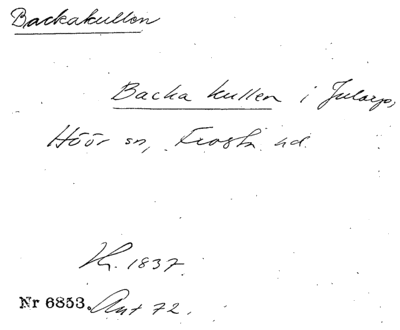 Backakullen
Backa kullen i Jularp,
Höör sn, Frosta hd.
Kr. 1837.
Nr 6853. Ant 72.